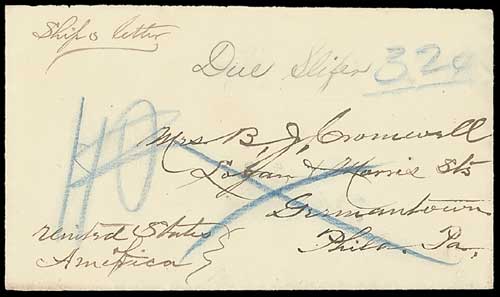 Ship's letter
Due 32¢
40
Mrs. B. J. Cromwell
Logan & Morris Sts
Germantown
Phila. Pa.
United States
America